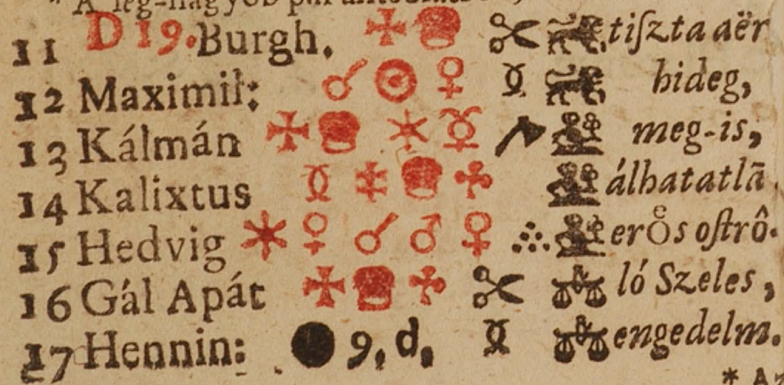 11 D 19. Burgh. tiſzta aër
12 Maximil: ☌ ☉ ♀ hideg,
13 Kálmán meg-is,
14 Kalixtus álhatatlā
15 Hedvig ♀ ☌ ♂ ♀ erős oſtrô-
16 Gál Apát ló Szeles,
17 Hennin: ● 9, d, engedelm.